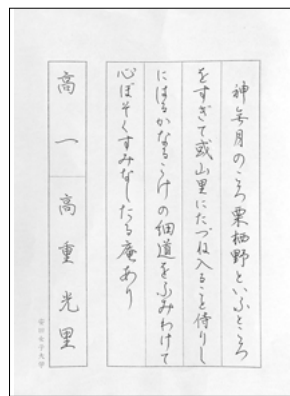 神無月のころ栗栖野といふところ
をすぎて或山里にたづね入ること侍りし
にはるかなるこけの細道をふみわけて
心ぼそくすみなしたる庵あり
高一 高重光里
安田女子大学